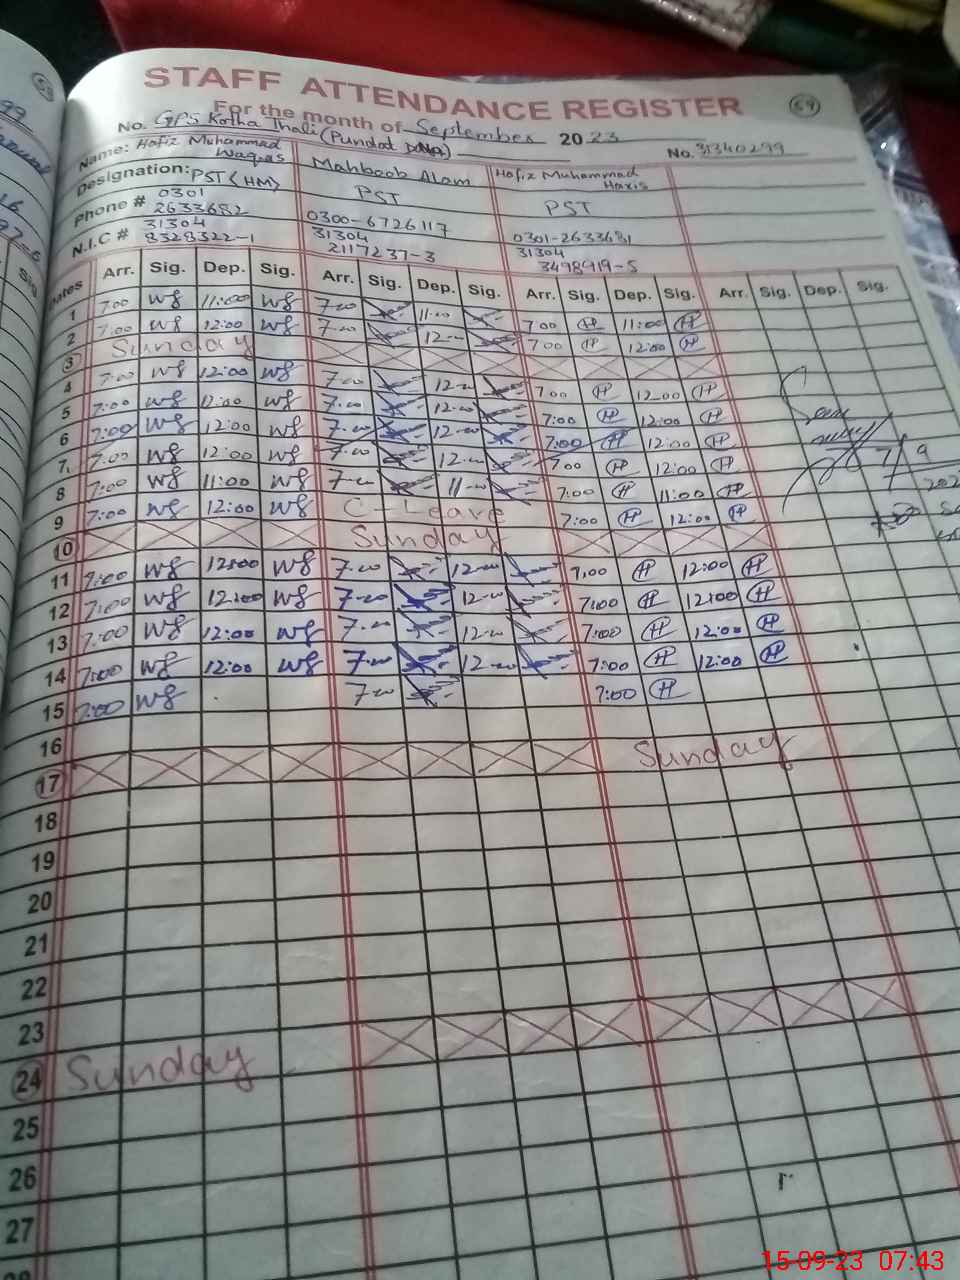 59
STAFF ATTENDANCE REGISTER
For the month of September 2023
No. GPS Kotha Thali (Pundat) No. 31340299
Name: Hafiz Muhammad Waqas Mahboob Alam Hafiz Muhammad Haris
Designation: PST (HM) PST PST
Phone # 0301 2633682 0300-6726117 0301-2633681
N.I.C # 31304 8328322-1 31304 2117237-3 31304 3498919-5
Dates Arr. Sig. Dep. Sig. Arr. Sig. Dep. Sig. Arr. Sig. Dep. Sig. Arr. Sig. Dep. Sig.
1 7:00 WS 11:00 WS 7-00 11-00 7:00 H 11:00 H
2 7:00 WS 12:00 WS 7-00 12-00 7:00 H 12:00 H
3 Sunday
4 7:00 WS 12:00 WS 7-00 12-00 7:00 H 12:00 H
5 7:00 WS 12:00 WS 7-00 12-00 7:00 H 12:00 H
6 7:00 WS 12:00 WS 7-00 12-00 7:00 H 12:00 H
7 7:00 WS 12:00 WS 7-00 12-00 7:00 H 12:00 H
8 7:00 WS 11:00 WS 7-00 11-00 7:00 H 11:00 H
9 7:00 WS 12:00 WS C-Leave 7:00 H 12:00 H
10 Sunday
11 7:00 WS 12:00 WS 7-00 12-00 7:00 H 12:00 H
12 7:00 WS 12:00 WS 7-00 12-00 7:00 H 12:00 H
13 7:00 WS 12:00 WS 7-00 12-00 7:00 H 12:00 H
14 7:00 WS 12:00 WS 7-00 12-00 7:00 H 12:00 H
15 7:00 WS 7-00 7:00 H
16
17 Sunday
18
19
20
21
22
23
24 Sunday
25
26
27
15-09-23 07:43